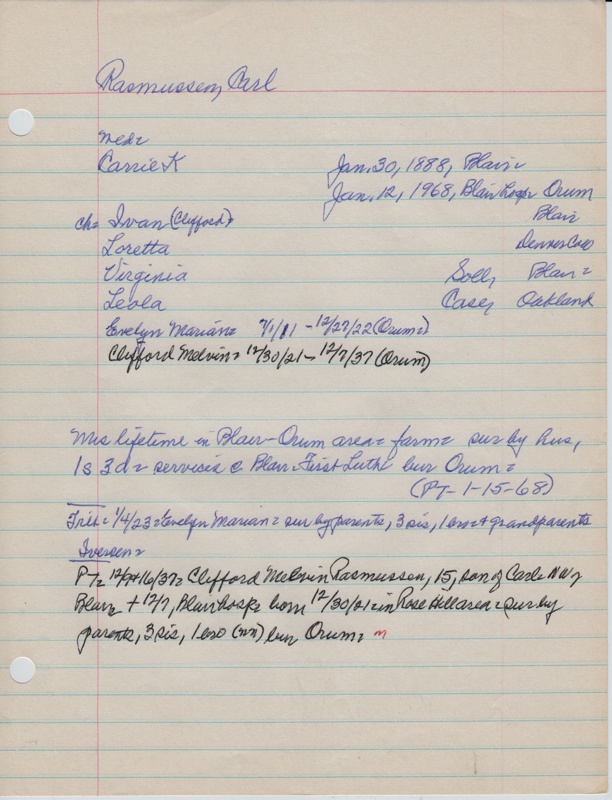 Rasmussen, Carl
Med=
Carrie K Jan. 30, 1888, Blair=
Jan. 12, 1968, Blair hosp=
ch= Ivan (Clifford) Orum
Loretta Blair
Virginia Denver Colo
Leola Solly Blair=
Casey Oakland
Evelyn Marian= 7/1/11 - 12/27/22 (Orum=)
Clifford Melvin= 12/30/21 - 12/7/37 (Orum)
Mrs lifetime in Blair-Orum area= farm= sur by hus,
1s 3d= services @ Blair First Luth bur Orum=
(PT- 1-15-68)
Trib= 1/4/23= Evelyn Marian= sur by parents, 3 sis, 1 bro= + grandparents
Iversen=
PT= 12/9+16/37= Clifford Melvin Rasmussen, 15, son of Carl= NW of
Blair= + 12/7, Blair hosp= born 12/30/21= in Rose Hill area= sur by
parents, 3 sis, 1 bro (nn) bur Orum= m